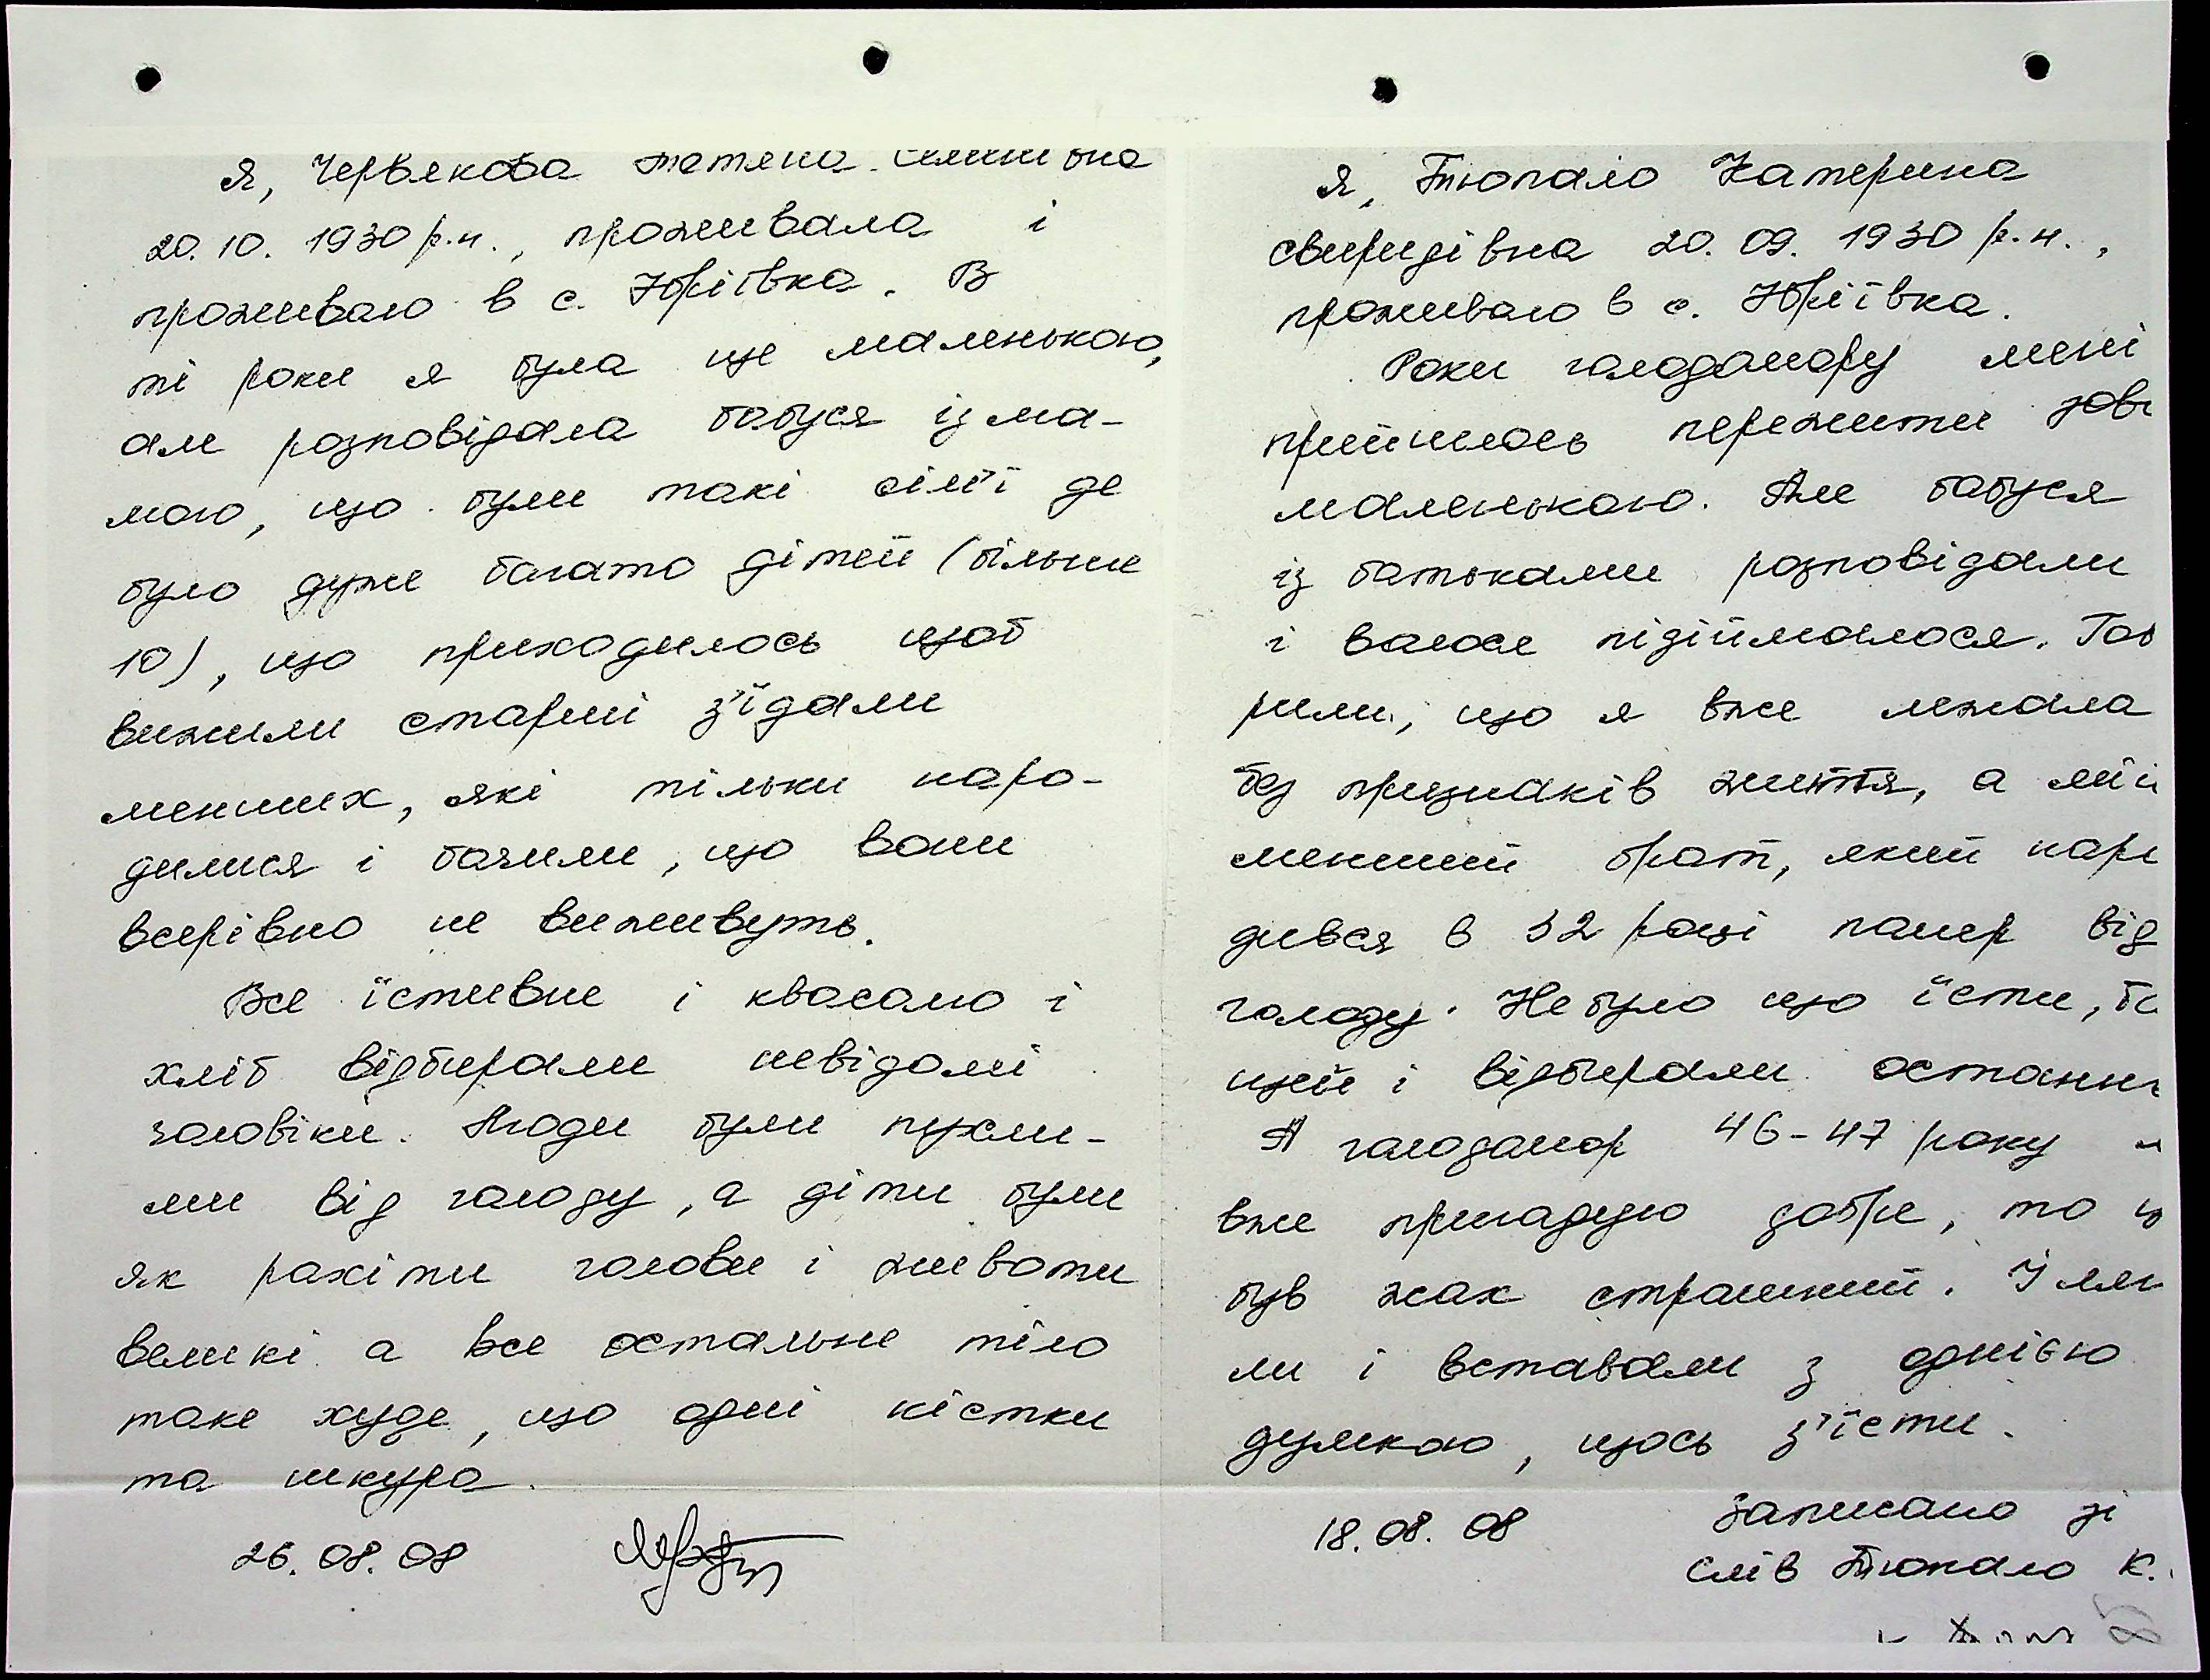 Я, Червякова Тетяна Семенівна
20.10.1930 р.н., проживала і
проживаю в с. Юріївка. В
ті роки я була ще маленькою,
але розповідала бабуся із ма-
мою, що були такі сім'ї де
було дуже багато дітей (більше
10), що приходилось щоб
вижили старші з'їдали
менших, які тільки наро-
дилися і бачили, що вони
всерівно не виживуть.
Все їстивне і квасолю і
хліб відбирали невідомі
чоловіки. Люди були пухли-
ми від голоду, а діти були
як рахіти голови і животи
великі а все остальне тіло
таке худе, що одні кістки
та шкура.
26.08.08
Я, Тюпало Катерина
Свиридівна 20.09.1930 р.н.,
проживаю в с. Юріївка.
Роки голодомору мені
прийшлось пережити зов
маленькою. Але бабуся
із батьками розповідали
і волосся підіймалося. Гов
рили, що я вже лежала
без признаків життя, а мій
менший брат, який наро
дився в 32 році помер від
голоду. Не було що їсти, бо
щей і відбирали останн
А голодомор 46-47 року
вже пригадую добре, то
був жах страшний. І ляг
ли і вставали з однією
думкою, щось з'їсти.
18.08.08 Записано зі
слів Тюпало К.
85